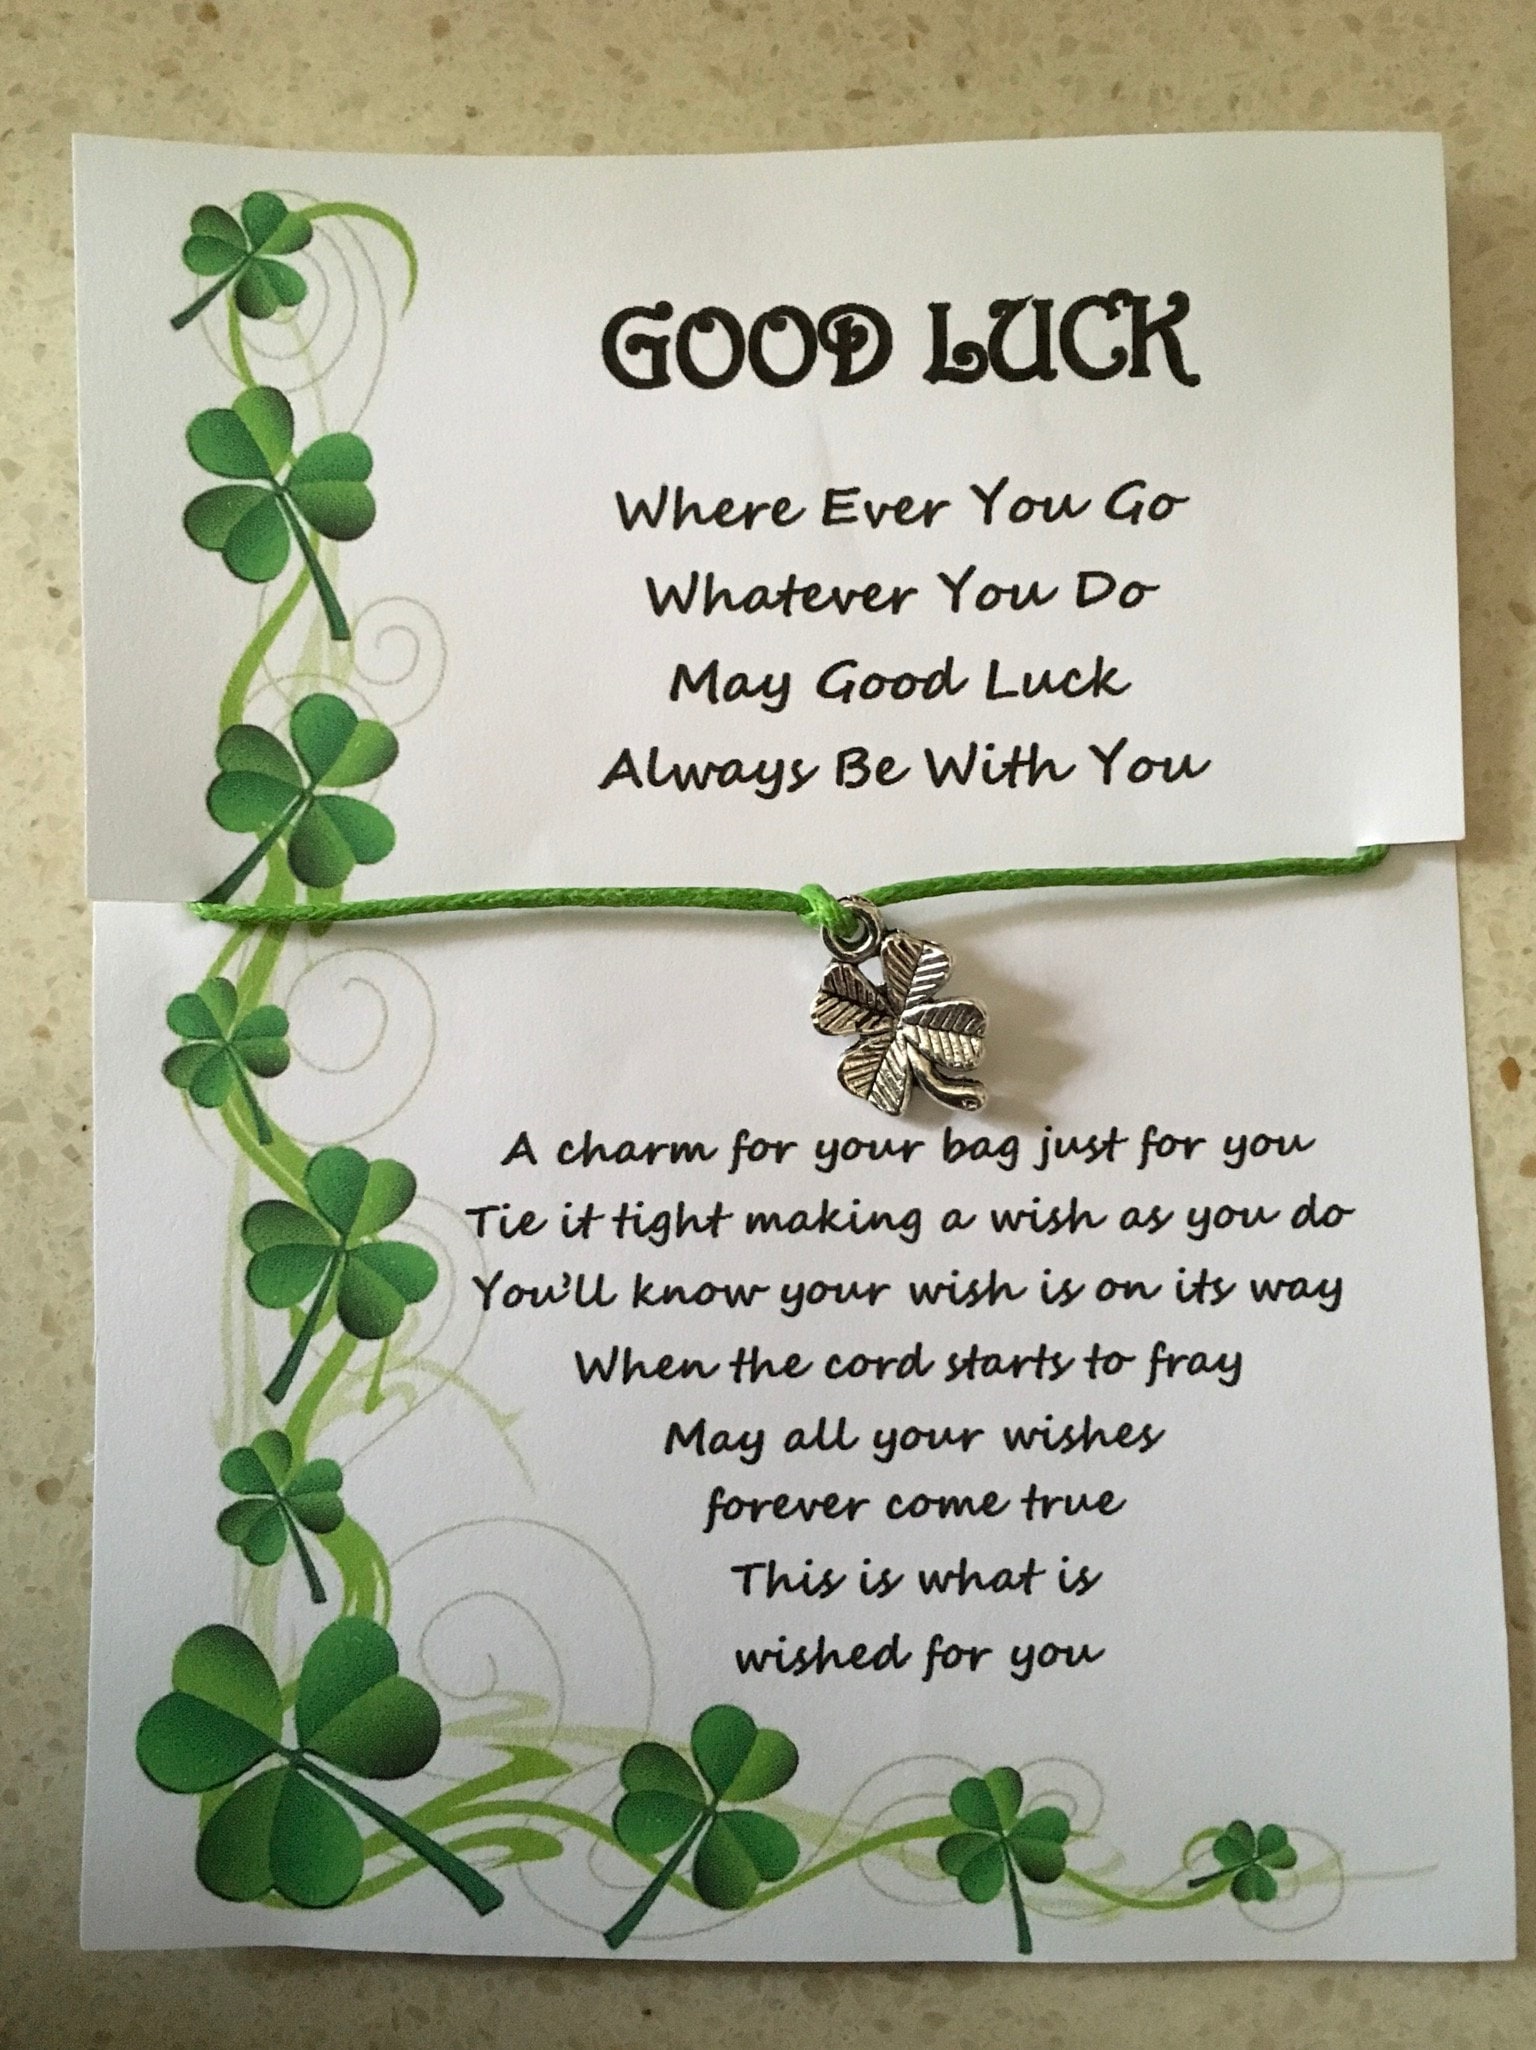 GOOD LUCK
Where Ever You Go
Whatever You Do
May Good Luck
Always Be With You
A charm for your bag just for you
Tie it tight making a wish as you do
You'll know your wish is on its way
When the cord starts to fray
May all your wishes
forever come true
This is what is
wished for you